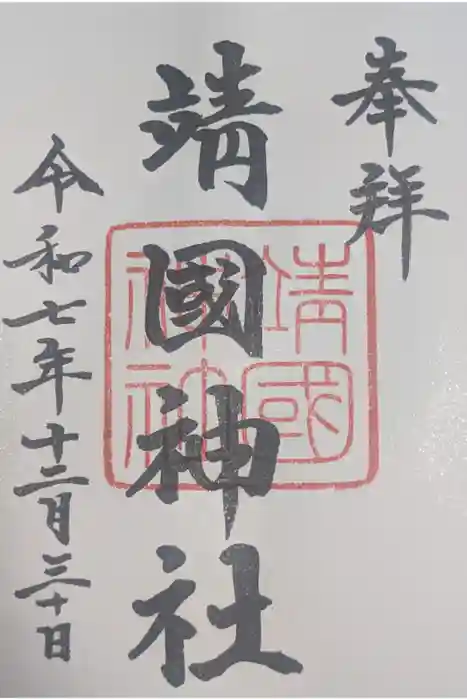 奉拜
靖國神社
靖國神社
令和七年十二月三十日